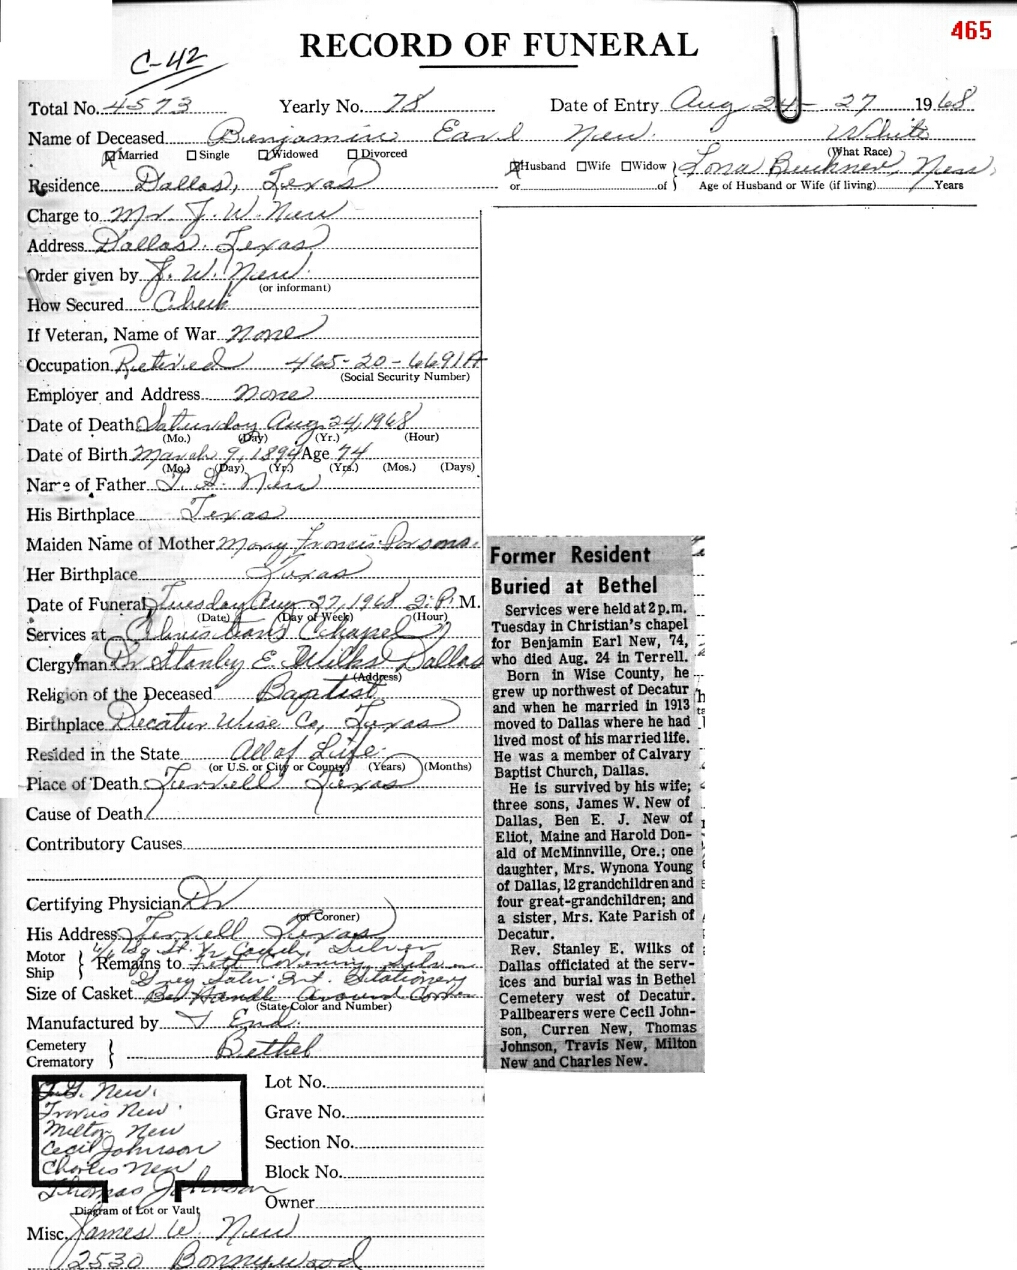 465
C-42
RECORD OF FUNERAL
Total No. 4573 Yearly No. 78 Date of Entry Aug 24 - 27 1968
Name of Deceased Benjamin Earl New White
Married Single Widowed Divorced (What Race)
Husband Wife Widow Lona Buckner New
or of Age of Husband or Wife (if living) Years
Residence Dallas, Texas
Charge to Mr J. W. New
Address Dallas, Texas
Order given by J. W. New
(or informant)
How Secured Check
If Veteran, Name of War None
Occupation Retired 465-20-6691A
(Social Security Number)
Employer and Address None
Date of Death Saturday Aug 24, 1968
(Mo.) (Day) (Yr.) (Hour)
Date of Birth March 9, 1894 Age 74
(Mo.) (Day) (Yr.) (Yrs.) (Mos.) (Days)
Name of Father T. G. New
His Birthplace Texas
Maiden Name of Mother Mary Francis
Her Birthplace Texas
Date of Funeral Tuesday Aug 27, 1968 2: P. M.
(Date) (Day of Week) (Hour)
Services at Christian's Chapel
Clergyman Stanley E. Wilks Dallas
(Address)
Religion of the Deceased Baptist
Birthplace Decatur Wise Co, Texas
Resided in the State All of Life
(or U.S. or City or County) (Years) (Months)
Place of Death Terrell Texas
Cause of Death
Contributory Causes
Certifying Physician Dr
(or Coroner)
His Address Terrell Texas
Motor Ship Remains to Silver
Size of Casket
(State Color and Number)
Manufactured by
Cemetery Crematory Bethel
New
Travis New
Milton New
Cecil Johnson
Charles New
Thomas Johnson
Diagram of Lot or Vault
Lot No.
Grave No.
Section No.
Block No.
Owner
Misc. James W. New
2530 Bonnywood
Former Resident
Buried at Bethel
Services were held at 2 p.m.
Tuesday in Christian's chapel
for Benjamin Earl New, 74,
who died Aug. 24 in Terrell.
Born in Wise County, he
grew up northwest of Decatur
and when he married in 1913
moved to Dallas where he had
lived most of his married life.
He was a member of Calvary
Baptist Church, Dallas.
He is survived by his wife;
three sons, James W. New of
Dallas, Ben E. J. New of
Eliot, Maine and Harold Don-
ald of McMinnville, Ore.; one
daughter, Mrs. Wynona Young
of Dallas, 12 grandchildren and
four great-grandchildren; and
a sister, Mrs. Kate Parish of
Decatur.
Rev. Stanley E. Wilks of
Dallas officiated at the serv-
ices and burial was in Bethel
Cemetery west of Decatur.
Pallbearers were Cecil John-
son, Curren New, Thomas
Johnson, Travis New, Milton
New and Charles New.